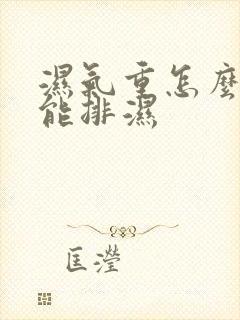 濕氣重怎麼
能排濕
匡瀅